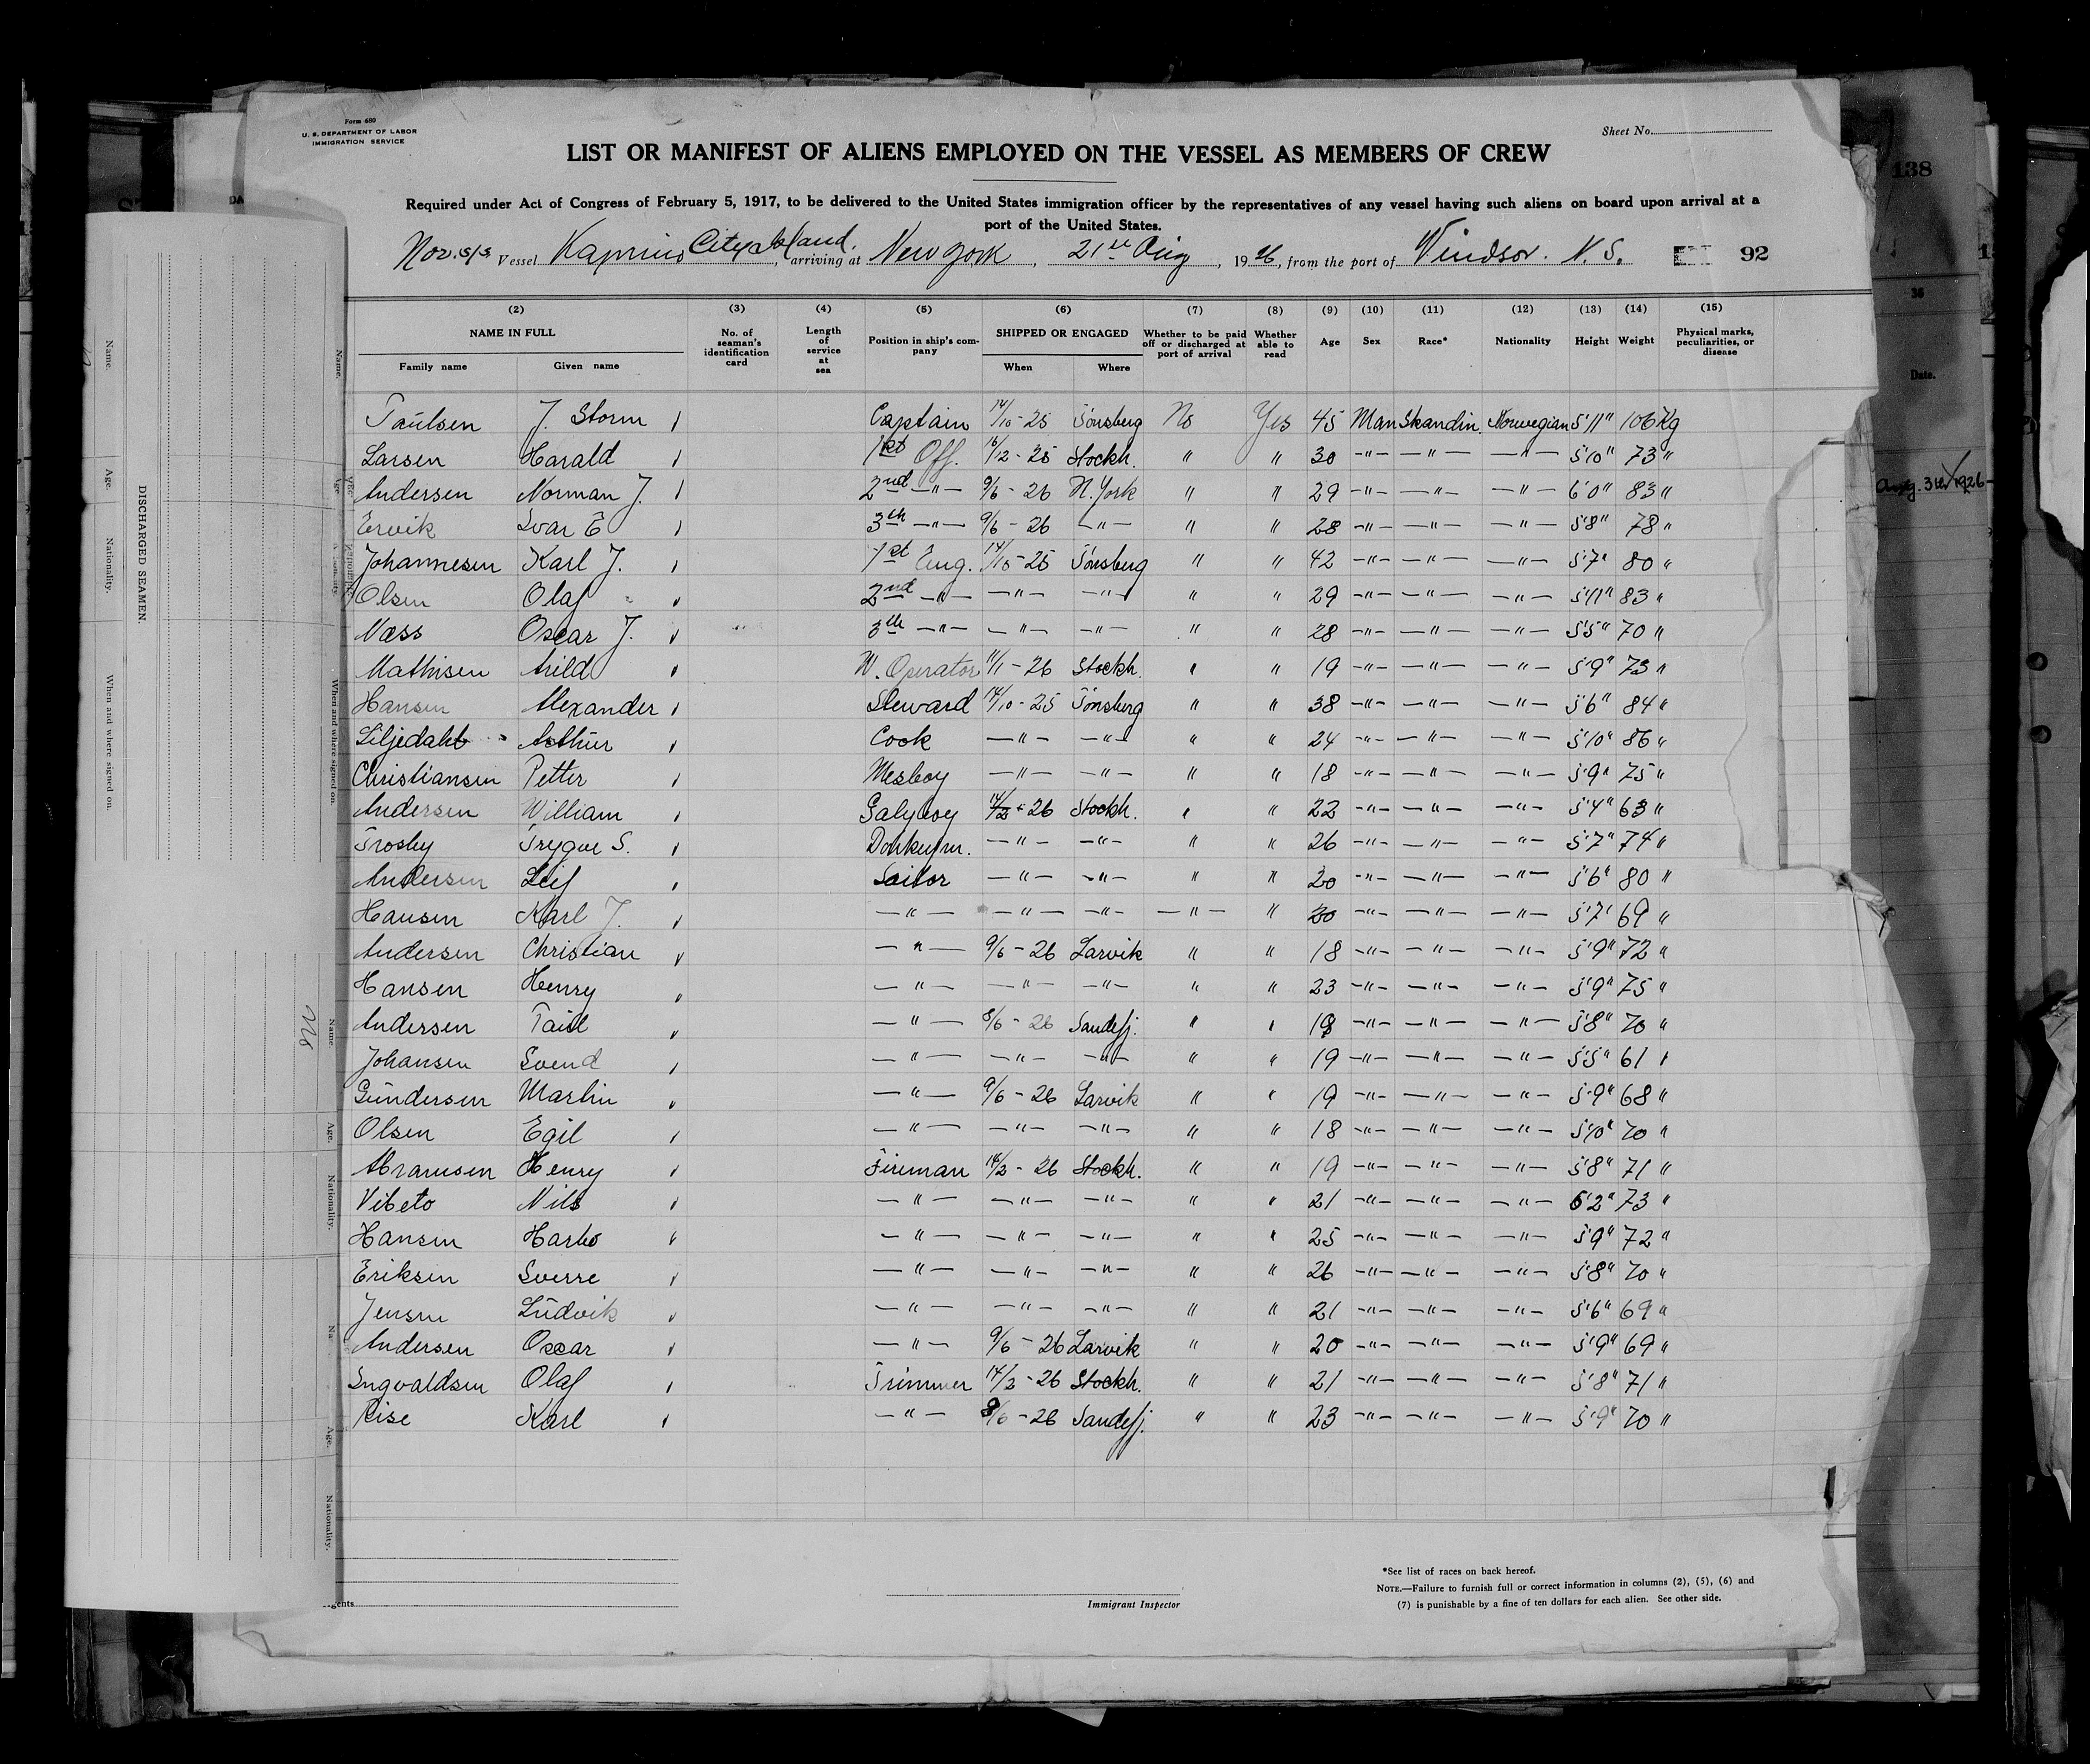 Form 680
U. S. DEPARTMENT OF LABOR
IMMIGRATION SERVICE
Sheet No.
LIST OR MANIFEST OF ALIENS EMPLOYED ON THE VESSEL AS MEMBERS OF CREW
Required under Act of Congress of February 5, 1917, to be delivered to the United States immigration officer by the representatives of any vessel having such aliens on board upon arrival at a
port of the United States.
Nor. s/s Vessel City Island, arriving at New York, 21st Aug, 1926, from the port of Windsor. N. S. 92
(2) (3) (4) (5) (6) (7) (8) (9) (10) (11) (12) (13) (14) (15)
NAME IN FULL No. of seaman's identification card Length of service at sea Position in ship's company SHIPPED OR ENGAGED Whether to be paid off or discharged at port of arrival Whether able to read Age Sex Race* Nationality Height Weight Physical marks, peculiarities, or disease
Family name Given name When Where
Paulsen J. Storm Captain 14/10-25 Tönsberg No Yes 45 Man Skandin. Norwegian 5'11" 106 Kg
Larsen Harald 1st Off. 16/12-25 Stockh. " " 30 -"- -"- -"- 5'10" 73 "
Andersen Norman J. 2nd -"- 9/6-26 N. York " " 29 -"- -"- -"- 6'0" 83 "
Ervik Ivar E 3th -"- 9/6-26 -"- " " 28 -"- -"- -"- 5'8" 78 "
Johannesen Karl J. 1st Eng. 14/10-25 Tönsberg " " 42 -"- -"- -"- 5'7" 80 "
Olsen Olaf 2nd -"- -"- -"- " " 29 -"- -"- -"- 5'11" 83 "
Næss Oscar J. 3th -"- -"- -"- " " 28 -"- -"- -"- 5'5" 70 "
Mathisen Arild W. Operator 11/1-26 Stockh. " " 19 -"- -"- -"- 5'9" 73 "
Hansen Alexander Steward 14/10-25 Tönsberg " " 38 -"- -"- -"- 5'6" 84 "
Liljedahl Arthur Cook -"- -"- " " 24 -"- -"- -"- 5'10" 86 "
Christiansen Petter Mesboy -"- -"- " " 18 -"- -"- -"- 5'9" 75 "
Andersen William Galyboy 14/2-26 Stockh. " " 22 -"- -"- -"- 5'4" 63 "
Trosby Trygve S. Donkeym. -"- -"- " " 26 -"- -"- -"- 5'7" 74 "
Andersen Leif Sailor -"- -"- " " 20 -"- -"- -"- 5'6" 80 "
Hansen Karl J. -"- -"- -"- -"- " 20 -"- -"- -"- 5'7" 69 "
Andersen Christian -"- 9/6-26 Larvik " " 18 -"- -"- -"- 5'9" 72 "
Hansen Henry -"- -"- -"- " " 23 -"- -"- -"- 5'9" 75 "
Andersen Paul -"- 8/6-26 Sandefj. " " 19 -"- -"- -"- 5'8" 70 "
Johansen Svend -"- -"- -"- " " 19 -"- -"- -"- 5'5" 61 "
Gundersen Martin -"- 9/6-26 Larvik " " 19 -"- -"- -"- 5'9" 68 "
Olsen Egil -"- -"- -"- " " 18 -"- -"- -"- 5'10" 70 "
Abramsen Henry Fireman 14/2-26 Stockh. " " 19 -"- -"- -"- 5'8" 71 "
Vibeto Nils -"- -"- -"- " " 21 -"- -"- -"- 6'2" 73 "
Hansen -"- -"- -"- " " 25 -"- -"- -"- 5'9" 72 "
Eriksen Sverre -"- -"- -"- " " 26 -"- -"- -"- 5'8" 70 "
Jensen Ludvik -"- -"- -"- " " 21 -"- -"- -"- 5'6" 69 "
Andersen Oscar -"- 9/6-26 Larvik " " 20 -"- -"- -"- 5'9" 69 "
Ingvaldsen Olaf Trimmer 14/2-26 Stockh. " " 21 -"- -"- -"- 5'8" 71 "
Riise Karl -"- 8/6-26 Sandefj. " " 23 -"- -"- -"- 5'9" 70 "
Immigrant Inspector
*See list of races on back hereof.
NOTE.—Failure to furnish full or correct information in columns (2), (5), (6) and
(7) is punishable by a fine of ten dollars for each alien. See other side.
DISCHARGED SEAMEN.
Name.
Age.
Nationality.
When and where signed on.
Name.
When and where signed on.
Name.
Age.
Nationality.
Age.
Nationality.
138
36
Date.